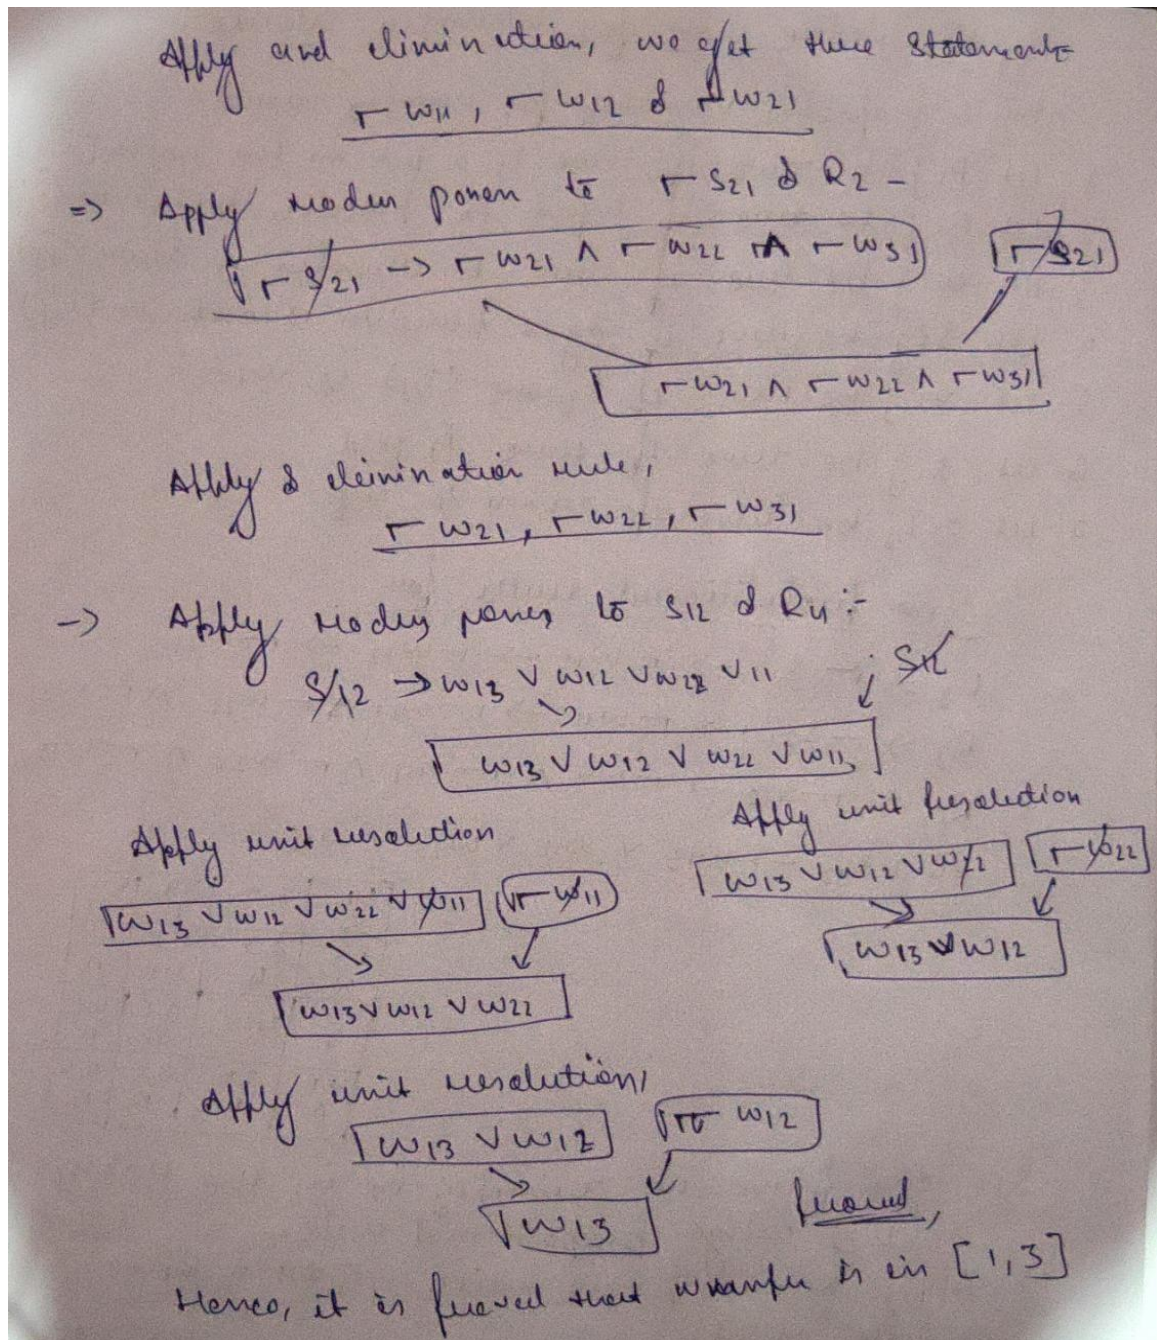 Apply and elimination, we get three statements
¬ W11, ¬ W12 & ¬ W21
=> Apply Modus ponen to ¬ S21 & R2 -
¬ S21 -> ¬ W21 ∧ ¬ W22 ∧ ¬ W31 ¬ S21
¬ W21 ∧ ¬ W22 ∧ ¬ W31
Apply & elimination rule,
¬ W21, ¬ W22, ¬ W31
-> Apply Modus ponens to S12 & R4 :-
S12 -> W13 ∨ W12 ∨ W22 ∨ 11 ; S12
W13 ∨ W12 ∨ W22 ∨ W11
Apply unit resolution
W13 ∨ W12 ∨ W22 ∨ W11 ¬ W11
W13 ∨ W12 ∨ W22
Apply unit resolution
W13 ∨ W12 ∨ W22 ¬ W22
W13 ∨ W12
Apply unit resolution,
W13 ∨ W12 ¬ W12
W13
proved,
Hence, it is proved that wumpus is in [1,3]